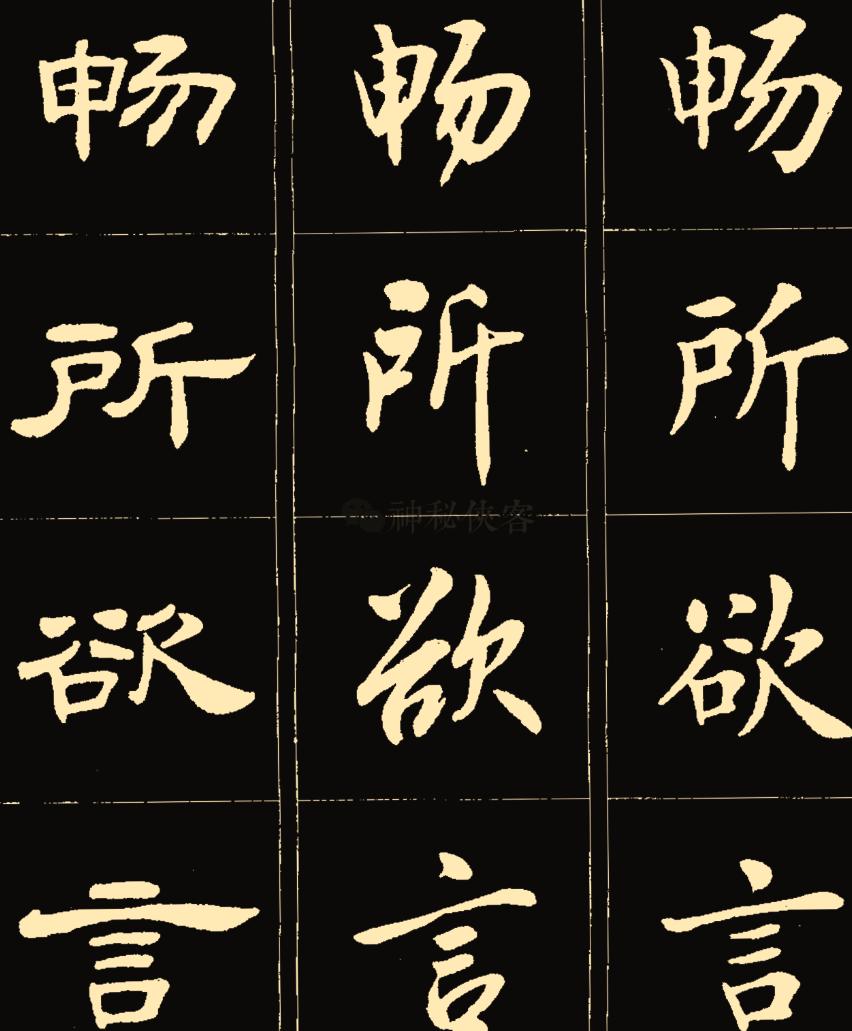 畅 畅 畅
所 所 所
神秘侠客
欲 欲 欲
言 言 言